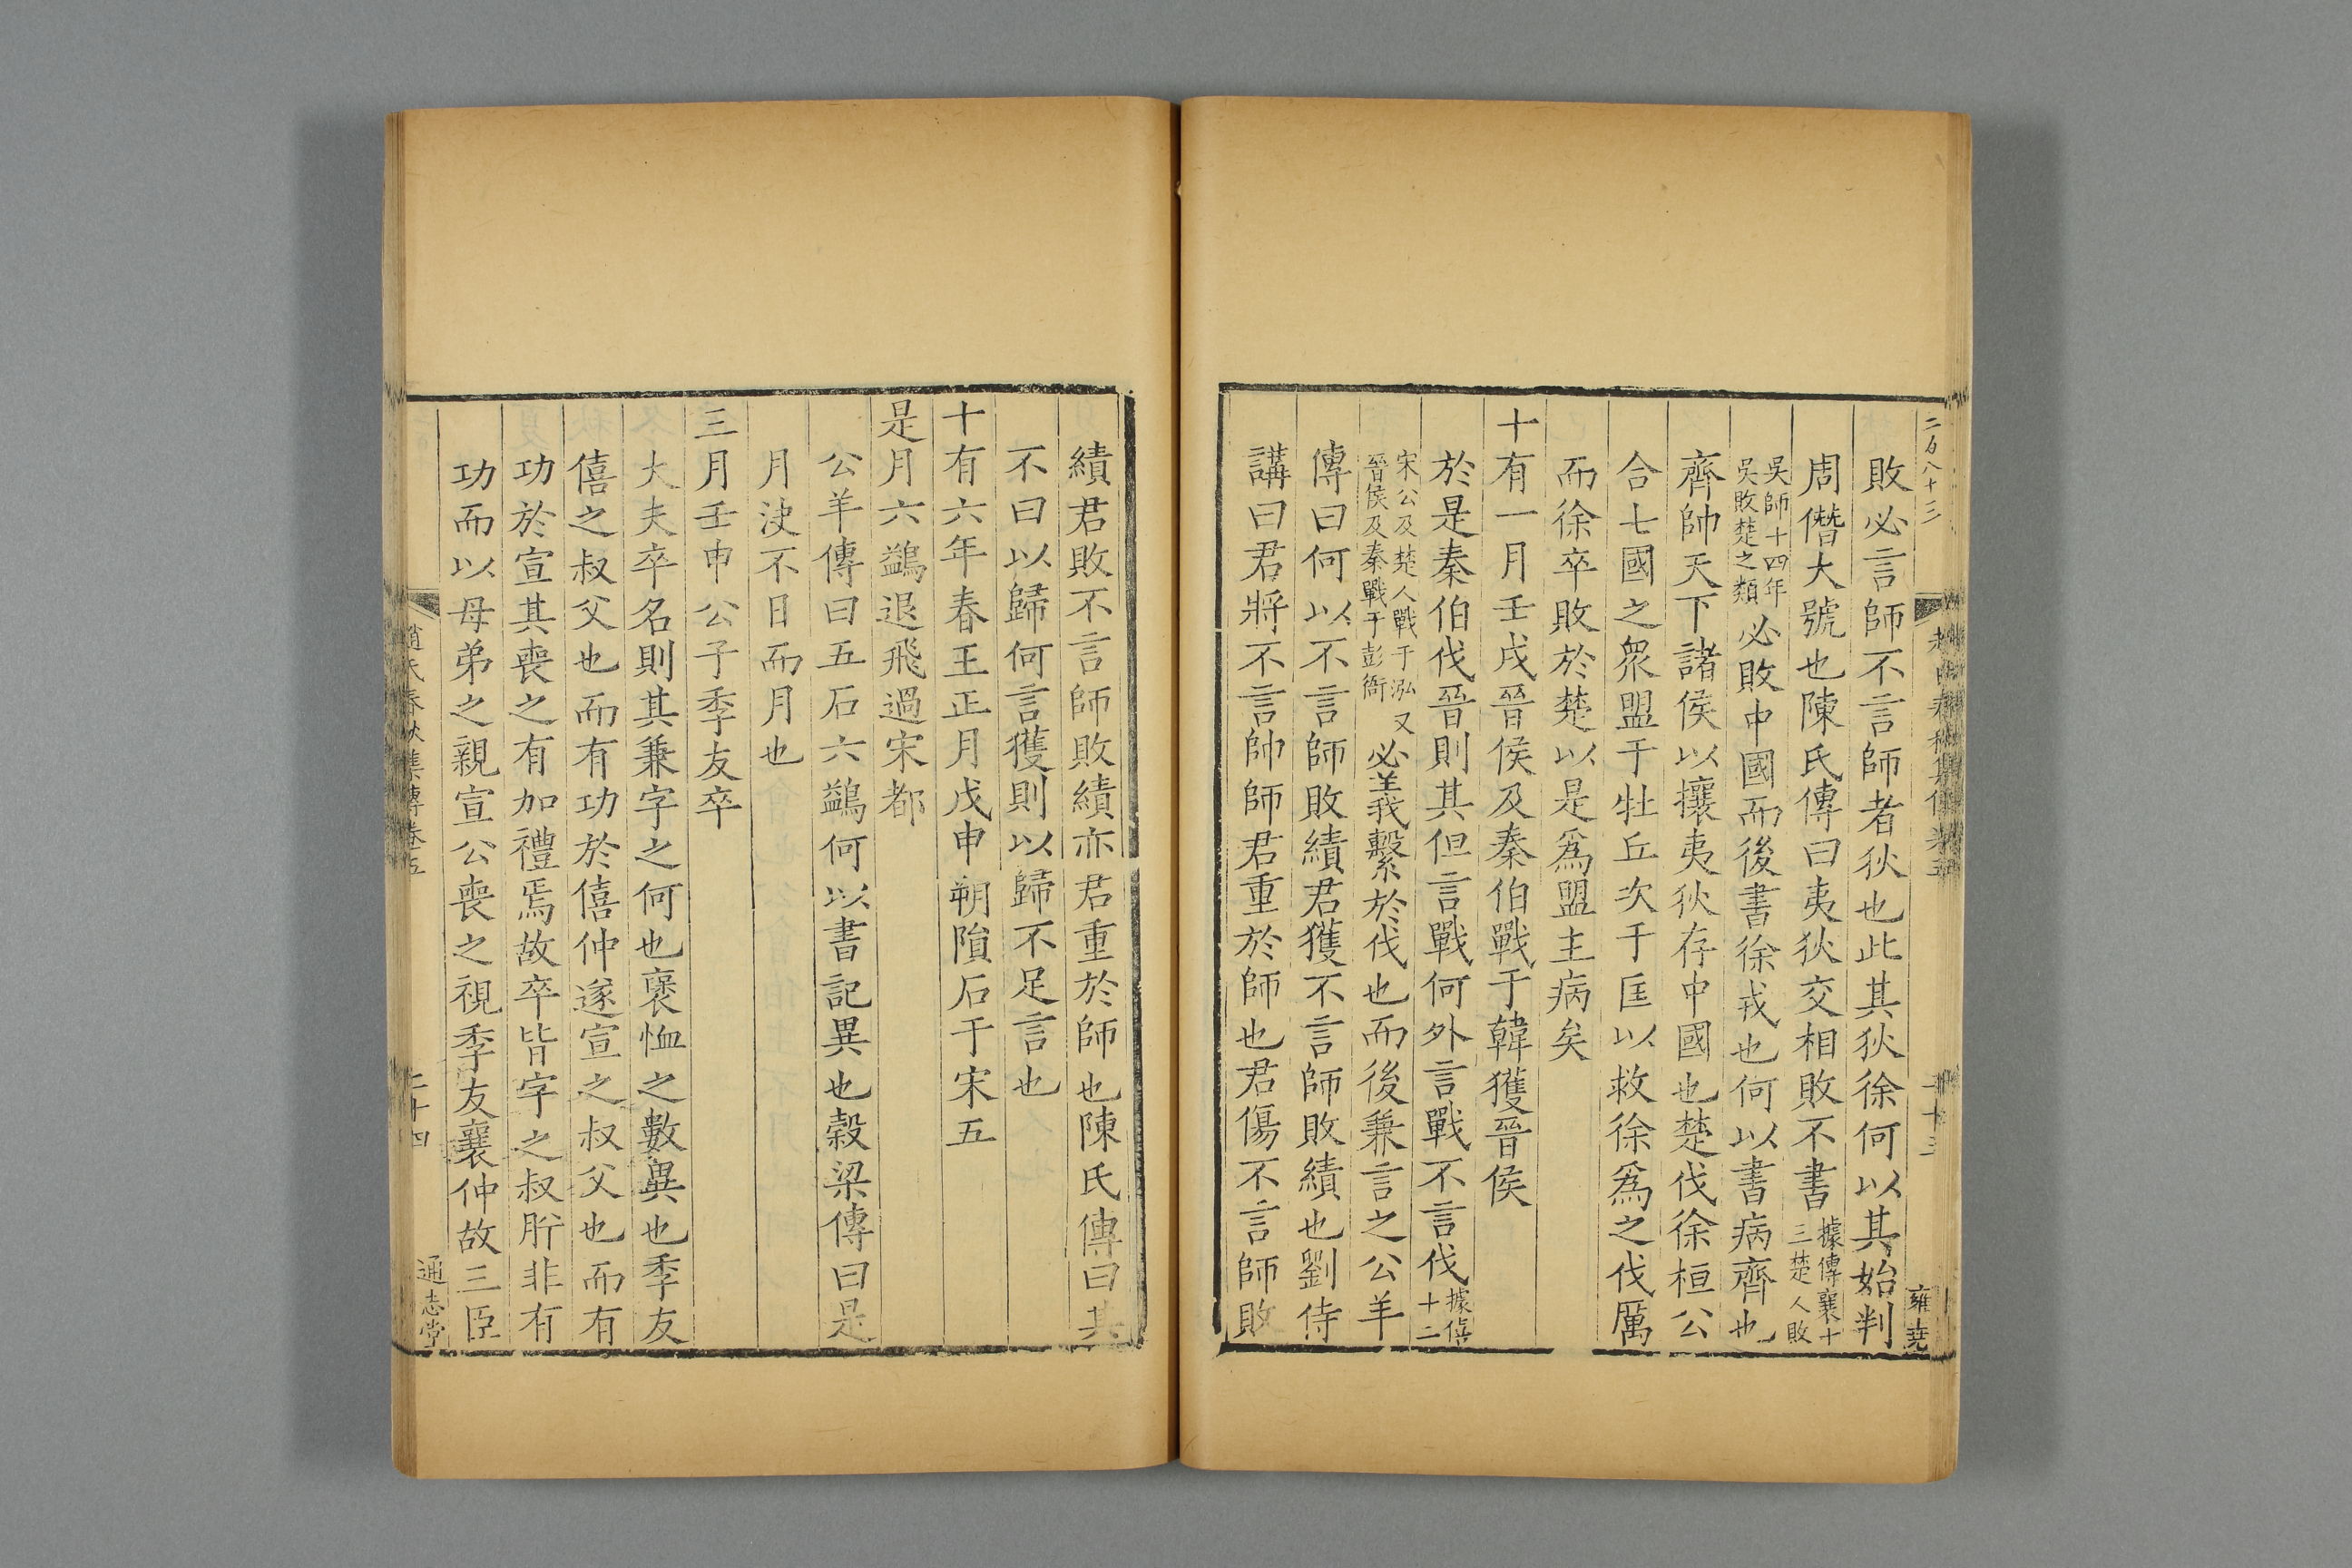 敗必言師不言師者狄也此其狄徐何以其始判
周僭大號也陳氏傳曰夷狄交相敗不書據傳襄十三楚人敗
吳師十四年吳敗楚之類必敗中國而後書徐戎也何以書病齊也
齊帥天下諸侯以攘夷狄存中國也楚伐徐桓公
合七國之衆盟于牡丘次于匡以救徐爲之伐厲
而徐卒敗於楚以是爲盟主病矣
十有一月壬戌晉侯及秦伯戰于韓獲晉侯
於是秦伯伐晉則其但言戰何外言戰不言伐據僖十二
宋公及楚人戰于泓又晉侯及秦戰于彭衙必義繫於伐也而後兼言之公羊
傳曰何以不言師敗績君獲不言師敗績也劉侍
講曰君將不言帥師君重於師也君傷不言師敗
雍堯
績君敗不言師敗績亦君重於師也陳氏傳曰其
不曰以歸何言獲則以歸不足言也
十有六年春王正月戊申朔隕石于宋五
是月六鷁退飛過宋都
公羊傳曰五石六鷁何以書記異也榖梁傳曰是
月決不日而月也
三月壬申公子季友卒
大夫卒名則其兼字之何也褒恤之數異也季友
僖之叔父也而有功於僖仲遂宣之叔父也而有
功於宣其喪之有加禮焉故卒皆字之叔肸非有
功而以母弟之親宣公喪之視季友襄仲故三臣
趙氏春秋集傳卷五
二十四
通志堂